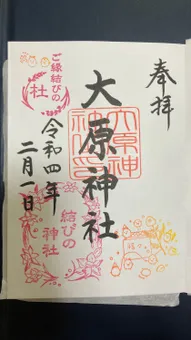 奉拝
大原神社
大原神
社印
ご縁結びの
杜
令和四年
二月一日
結びの
神社